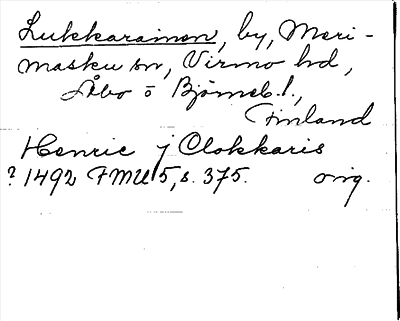 Lukkarainen, by, Meri-
masku sn, Virmo hd,
Åbo o Björneb. l.,
Finland
Henric j Clokkaris
? 1492 FMU 5, s. 375. orig.